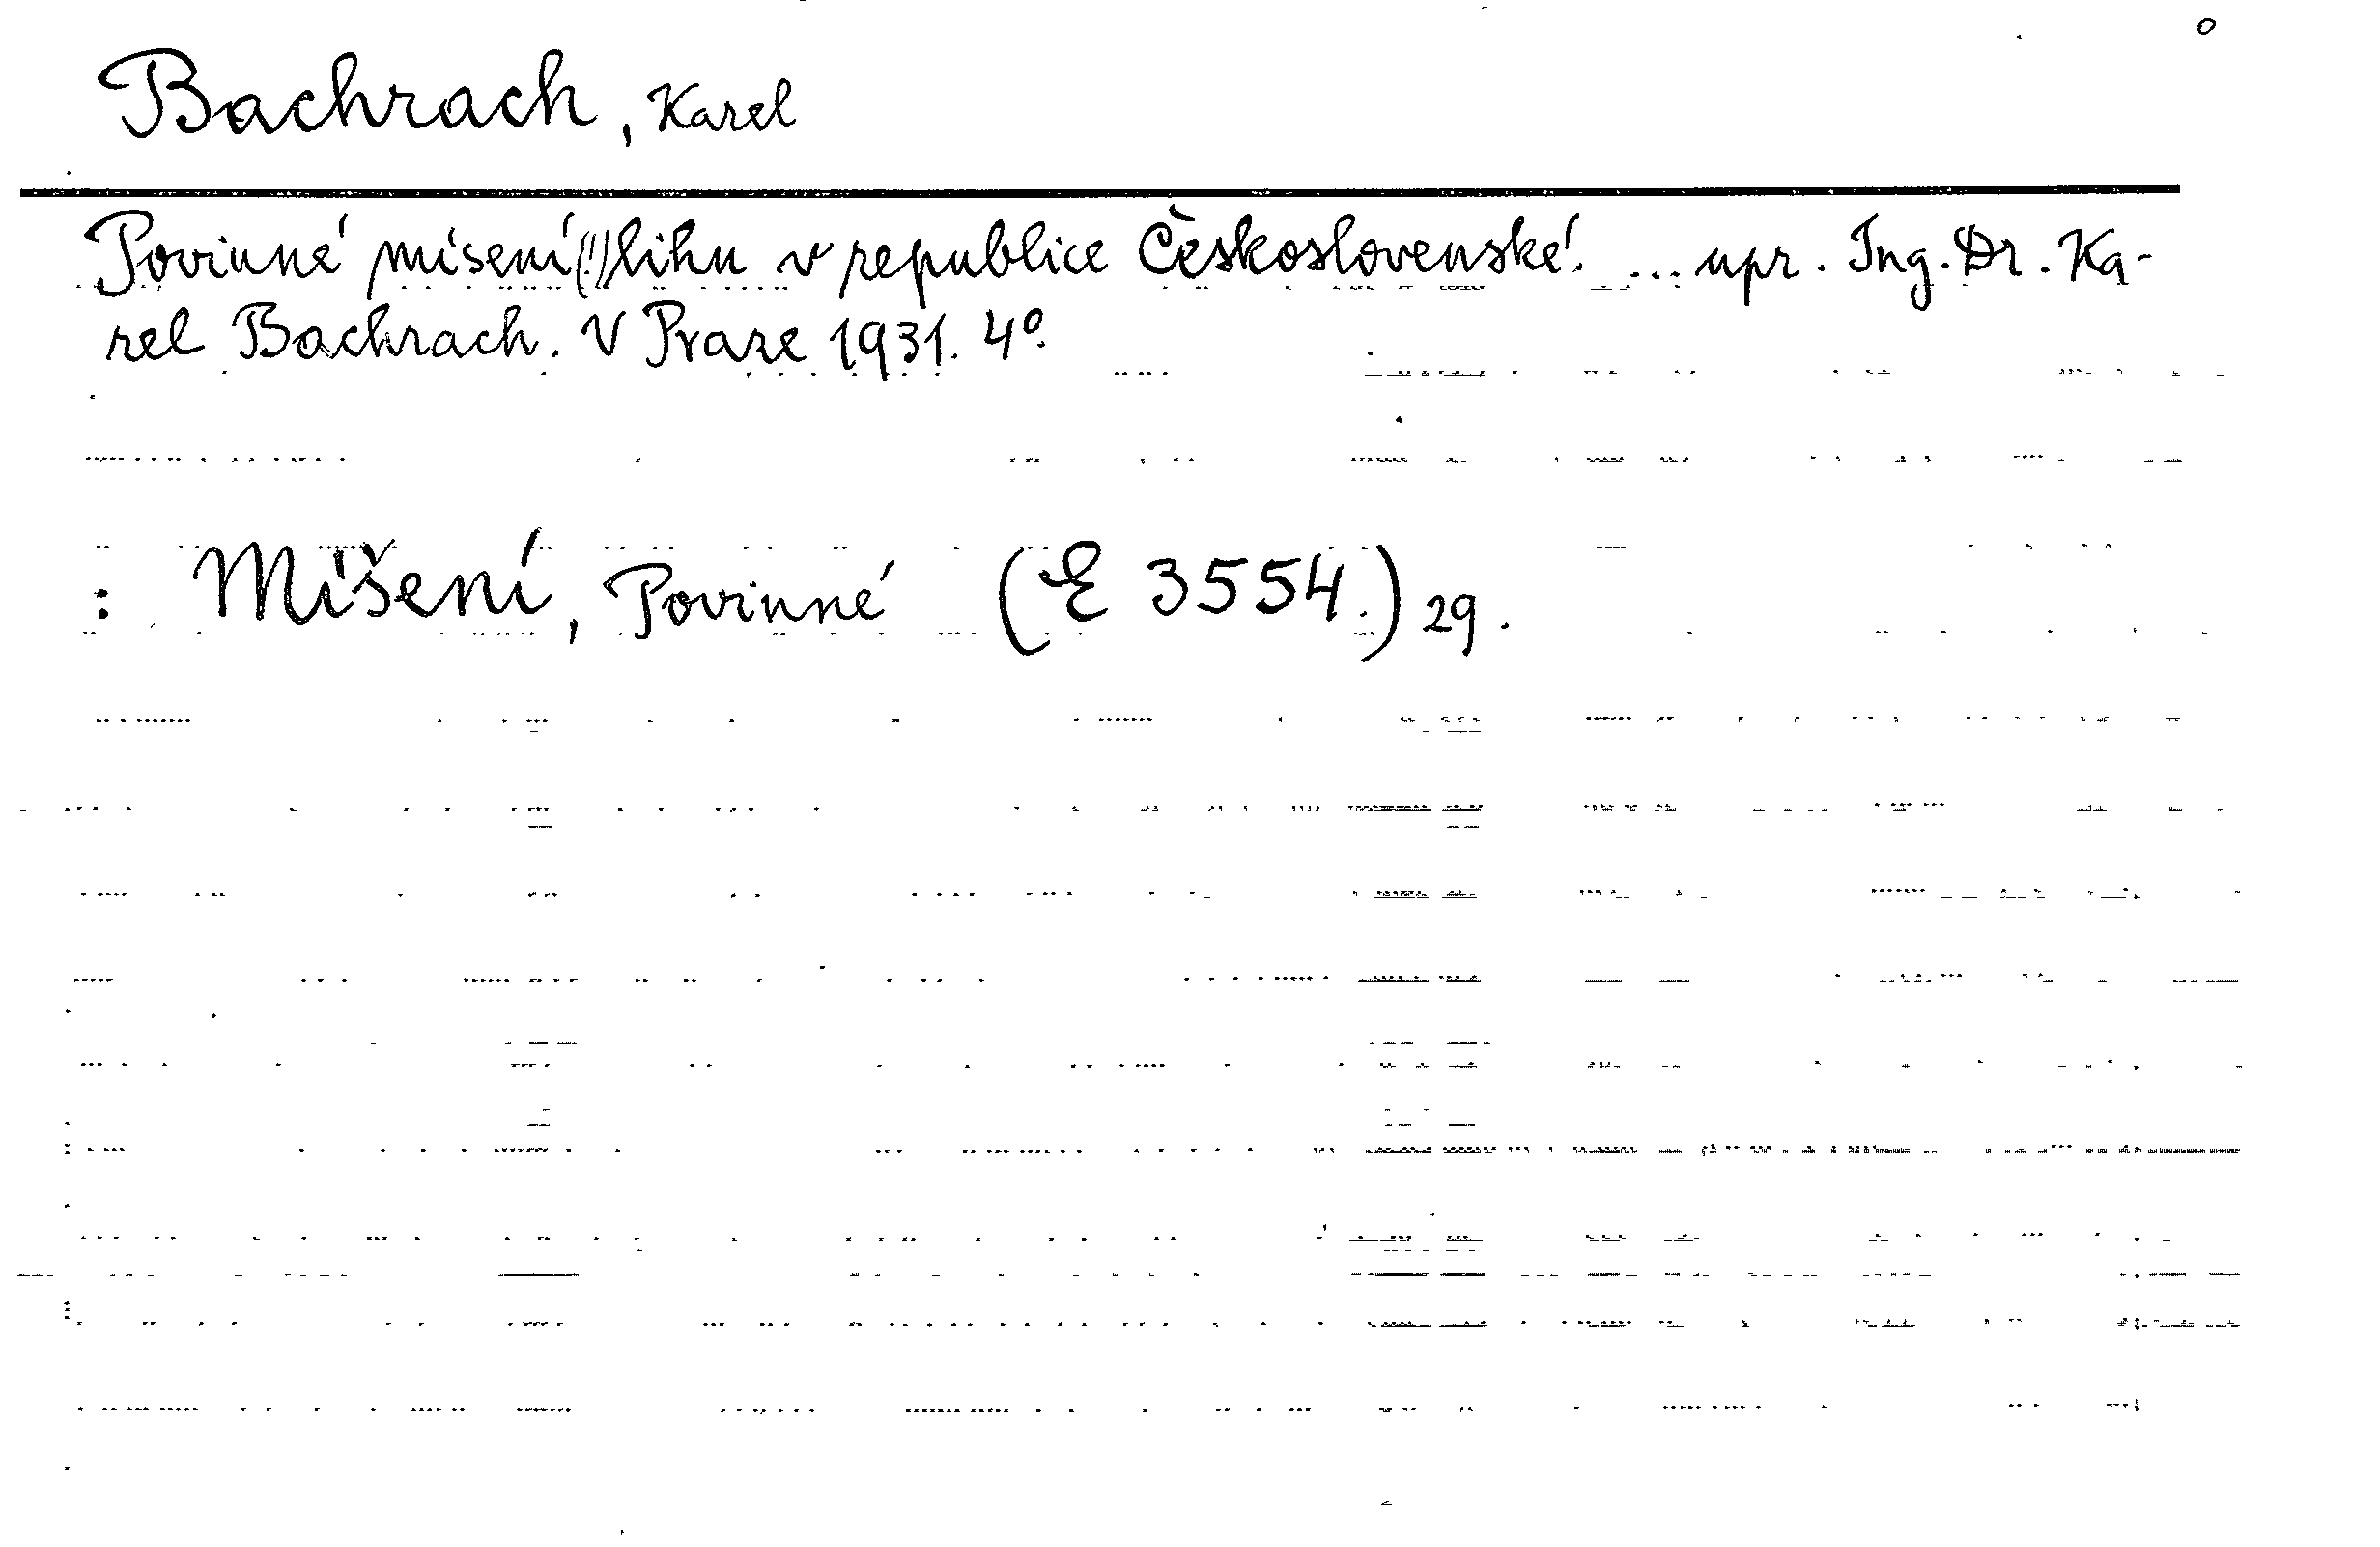 Bachrach, Karel
Povinné mísení(!) lihu v republice Československé. ... upr. Ing. Dr. Ka-
rel Bachrach. V Praze 1931. 4°.
: Míšení, Povinné (E 3554.) 29.